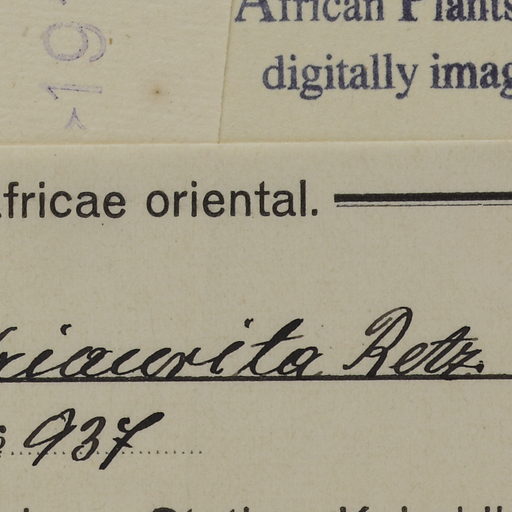 African Plants
digitally imag
-191
fricae oriental.
triaurita Retz.
937